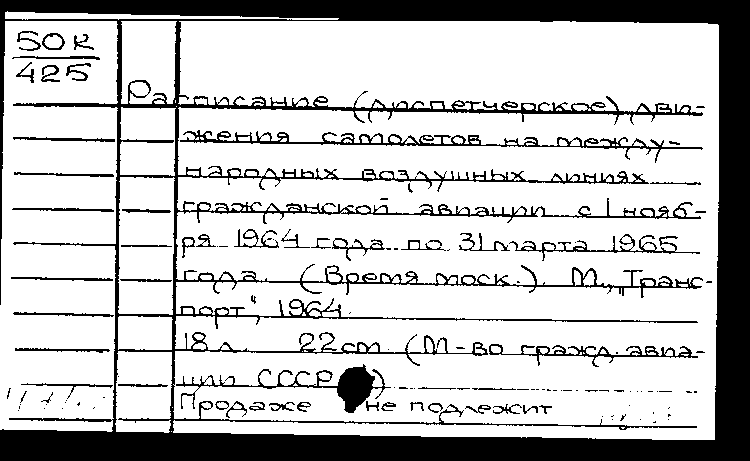 50К
425
Расписание (диспетчерское) дви-
жения самолетов на между-
народных воздушных линиях
гражданской авиации с 1 нояб-
ря 1964 года по 31 марта 1965
года. (Время моск.). М., „Транс-
порт", 1964.
18 л. 22 см (М-во гражд. авиа-
ции СССР)
Продаже не подлежит